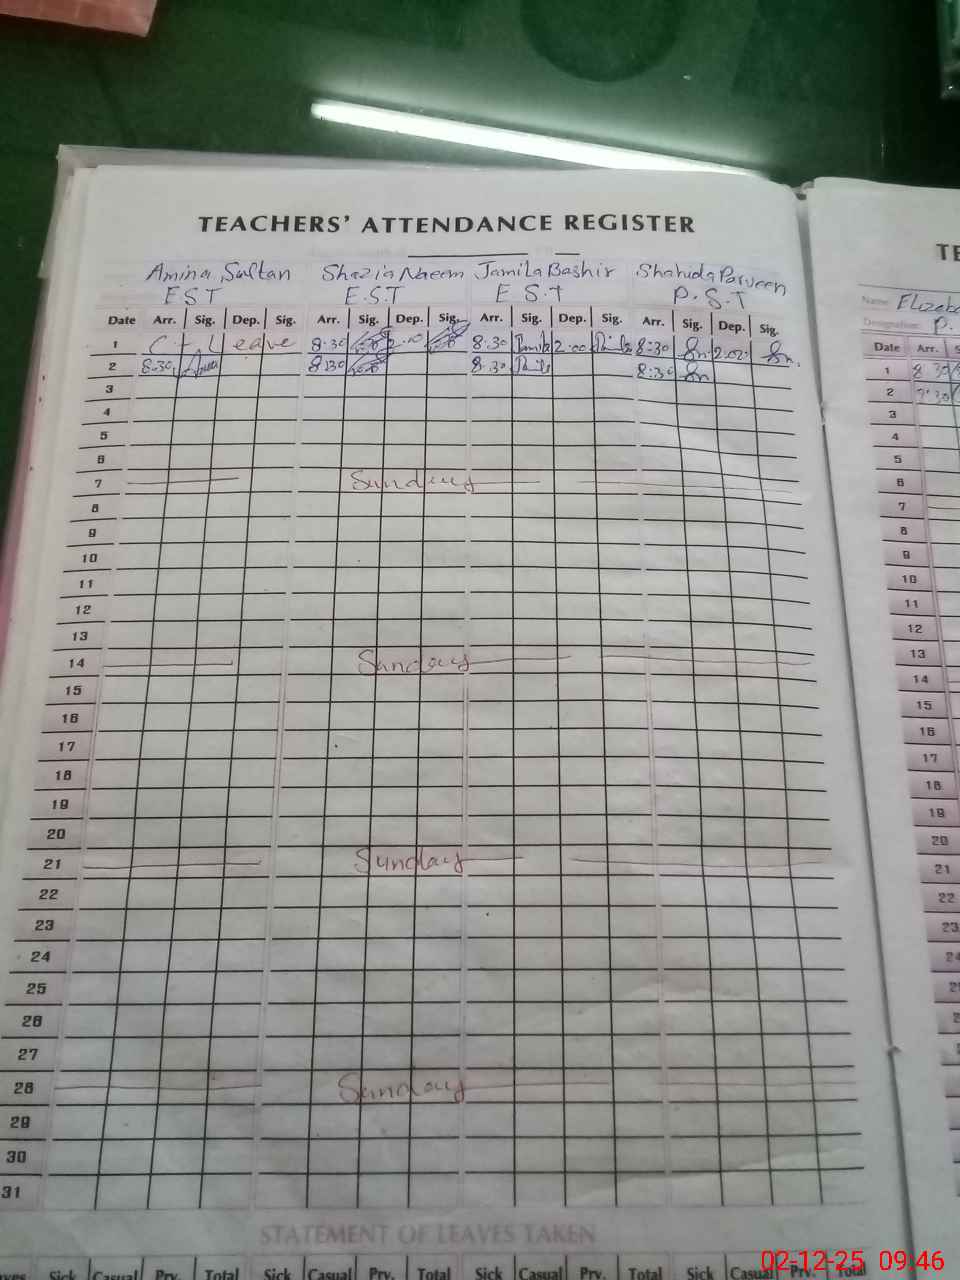 TEACHERS' ATTENDANCE REGISTER
Amina Sultan Shazia Naeem Jamila Bashir Shahida Parveen
E S T E.S.T E S.T P.S.T
Date Arr. Sig. Dep. Sig. Arr. Sig. Dep. Sig. Arr. Sig. Dep. Sig. Arr. Sig. Dep. Sig.
1 Leave 8.30 8.30 2.00 8:30 2.00
2 8:30 8:30 8.30 8:30
3
4
5
6
7 Sunday
8
9
10
11
12
13
14 Sunday
15
16
17
18
19
20
21 Sunday
22
23
24
25
26
27
28 Sunday
29
30
31
STATEMENT OF LEAVES TAKEN
Sick Casual Prv. Total Sick Casual Prv. Total Sick Casual Prv. Total Sick Casual Prv. Total
Name:
Designation: P.
Date Arr.
1 8.30
2
3
4
5
6
7
8
9
10
11
12
13
14
15
16
17
18
19
20
21
22
23
02-12-25 09:46